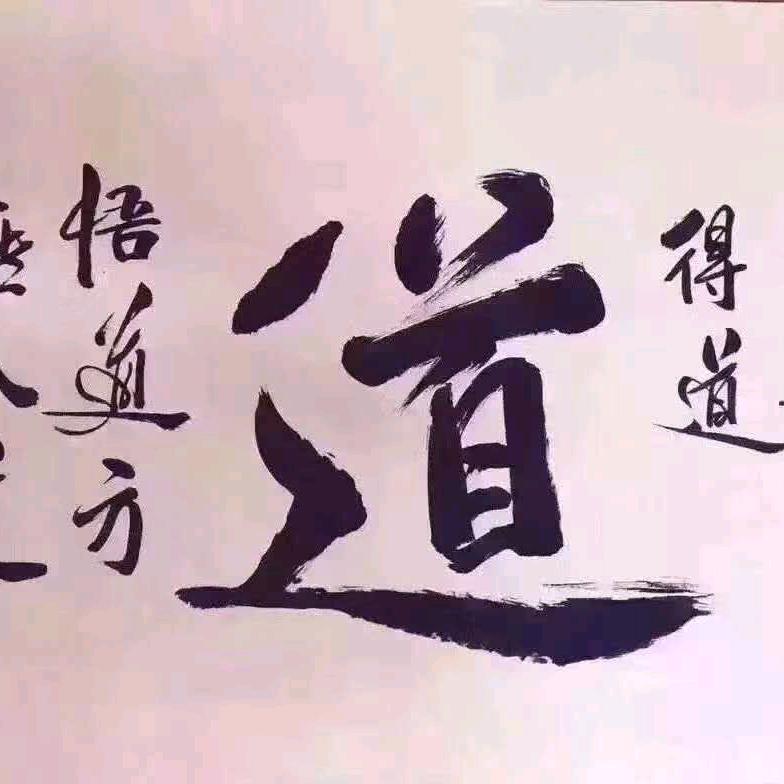 得道
道
悟道方